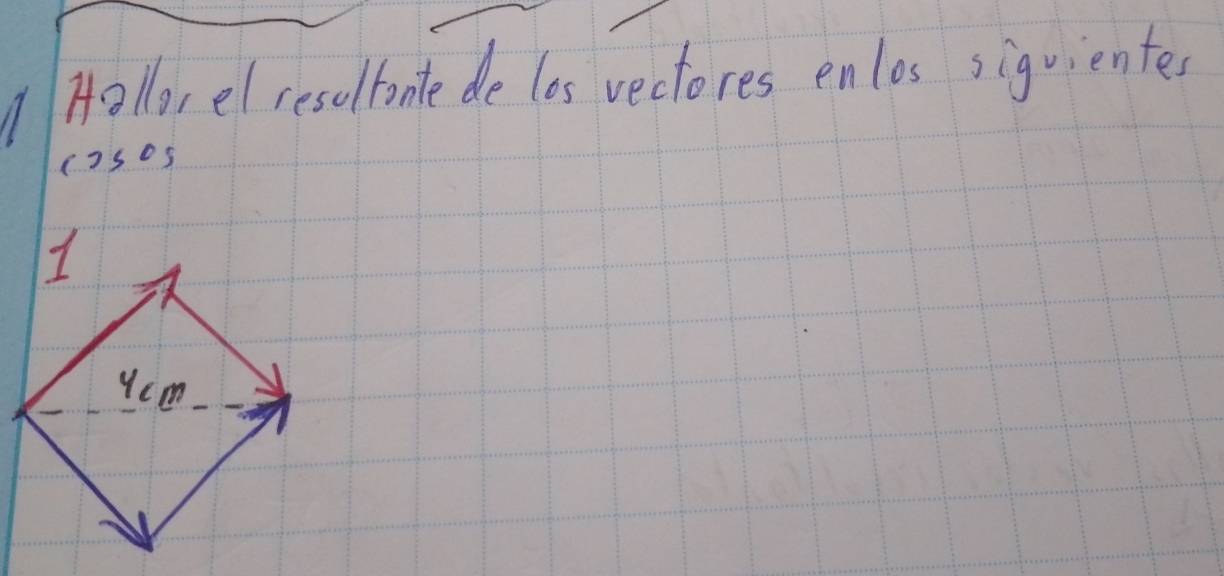 Hallar el resultante de los vectores en los siguientes
casos
1
4cm